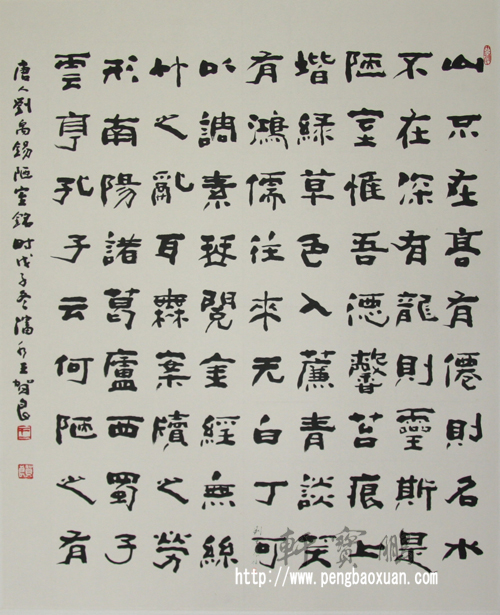 山不在高有僊則名水
不在深有龍則靈斯是
陋室惟吾德馨苔痕上
堦綠草色入簾青談笑
有鴻儒往來无白丁可
以調素琴閱金經無絲
竹之亂耳無案牘之勞
形南陽諸葛廬西蜀子
雲亭孔子云何陋之有
唐人劉禹錫陋室銘时戊子冬
鵬寶軒
http://www.pengbaoxuan.com